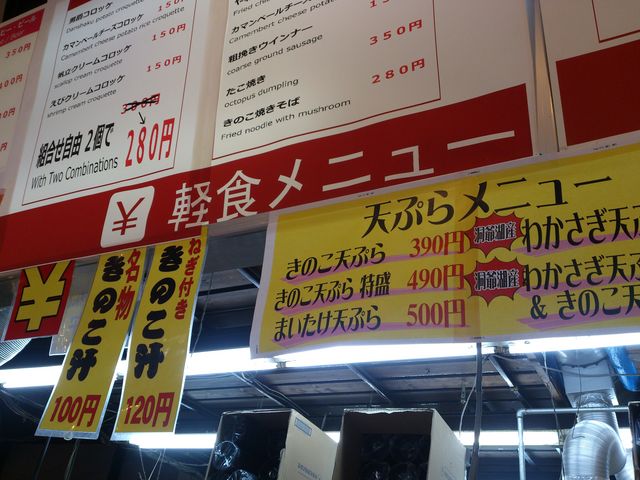 350円
150円
男爵コロッケ
Danshaku potato croquette
150円
カマンベールチーズコロッケ
Camembert cheese potato rice croquette
150円
帆立クリームコロッケ
scallop cream croquette
150円
えびクリームコロッケ
shrimp cream croquette
300円
組合せ自由 2個で 280円
With Two Combinations
Fried
カマンベールチーズ
Camembert cheese potato
350円
粗挽きウインナー
coarse ground sausage
350円
たこ焼き
octopus dumpling
280円
きのこ焼きそば
Fried noodle with mushroom
¥ 軽食メニュー
天ぷらメニュー
きのこ天ぷら 390円
きのこ天ぷら 特盛 490円
まいたけ天ぷら 500円
洞爺湖産 わかさぎ天
洞爺湖産 わかさぎ天
& きのこ天
¥
名物
きのこ汁
100円
ねぎ付き
きのこ汁
120円